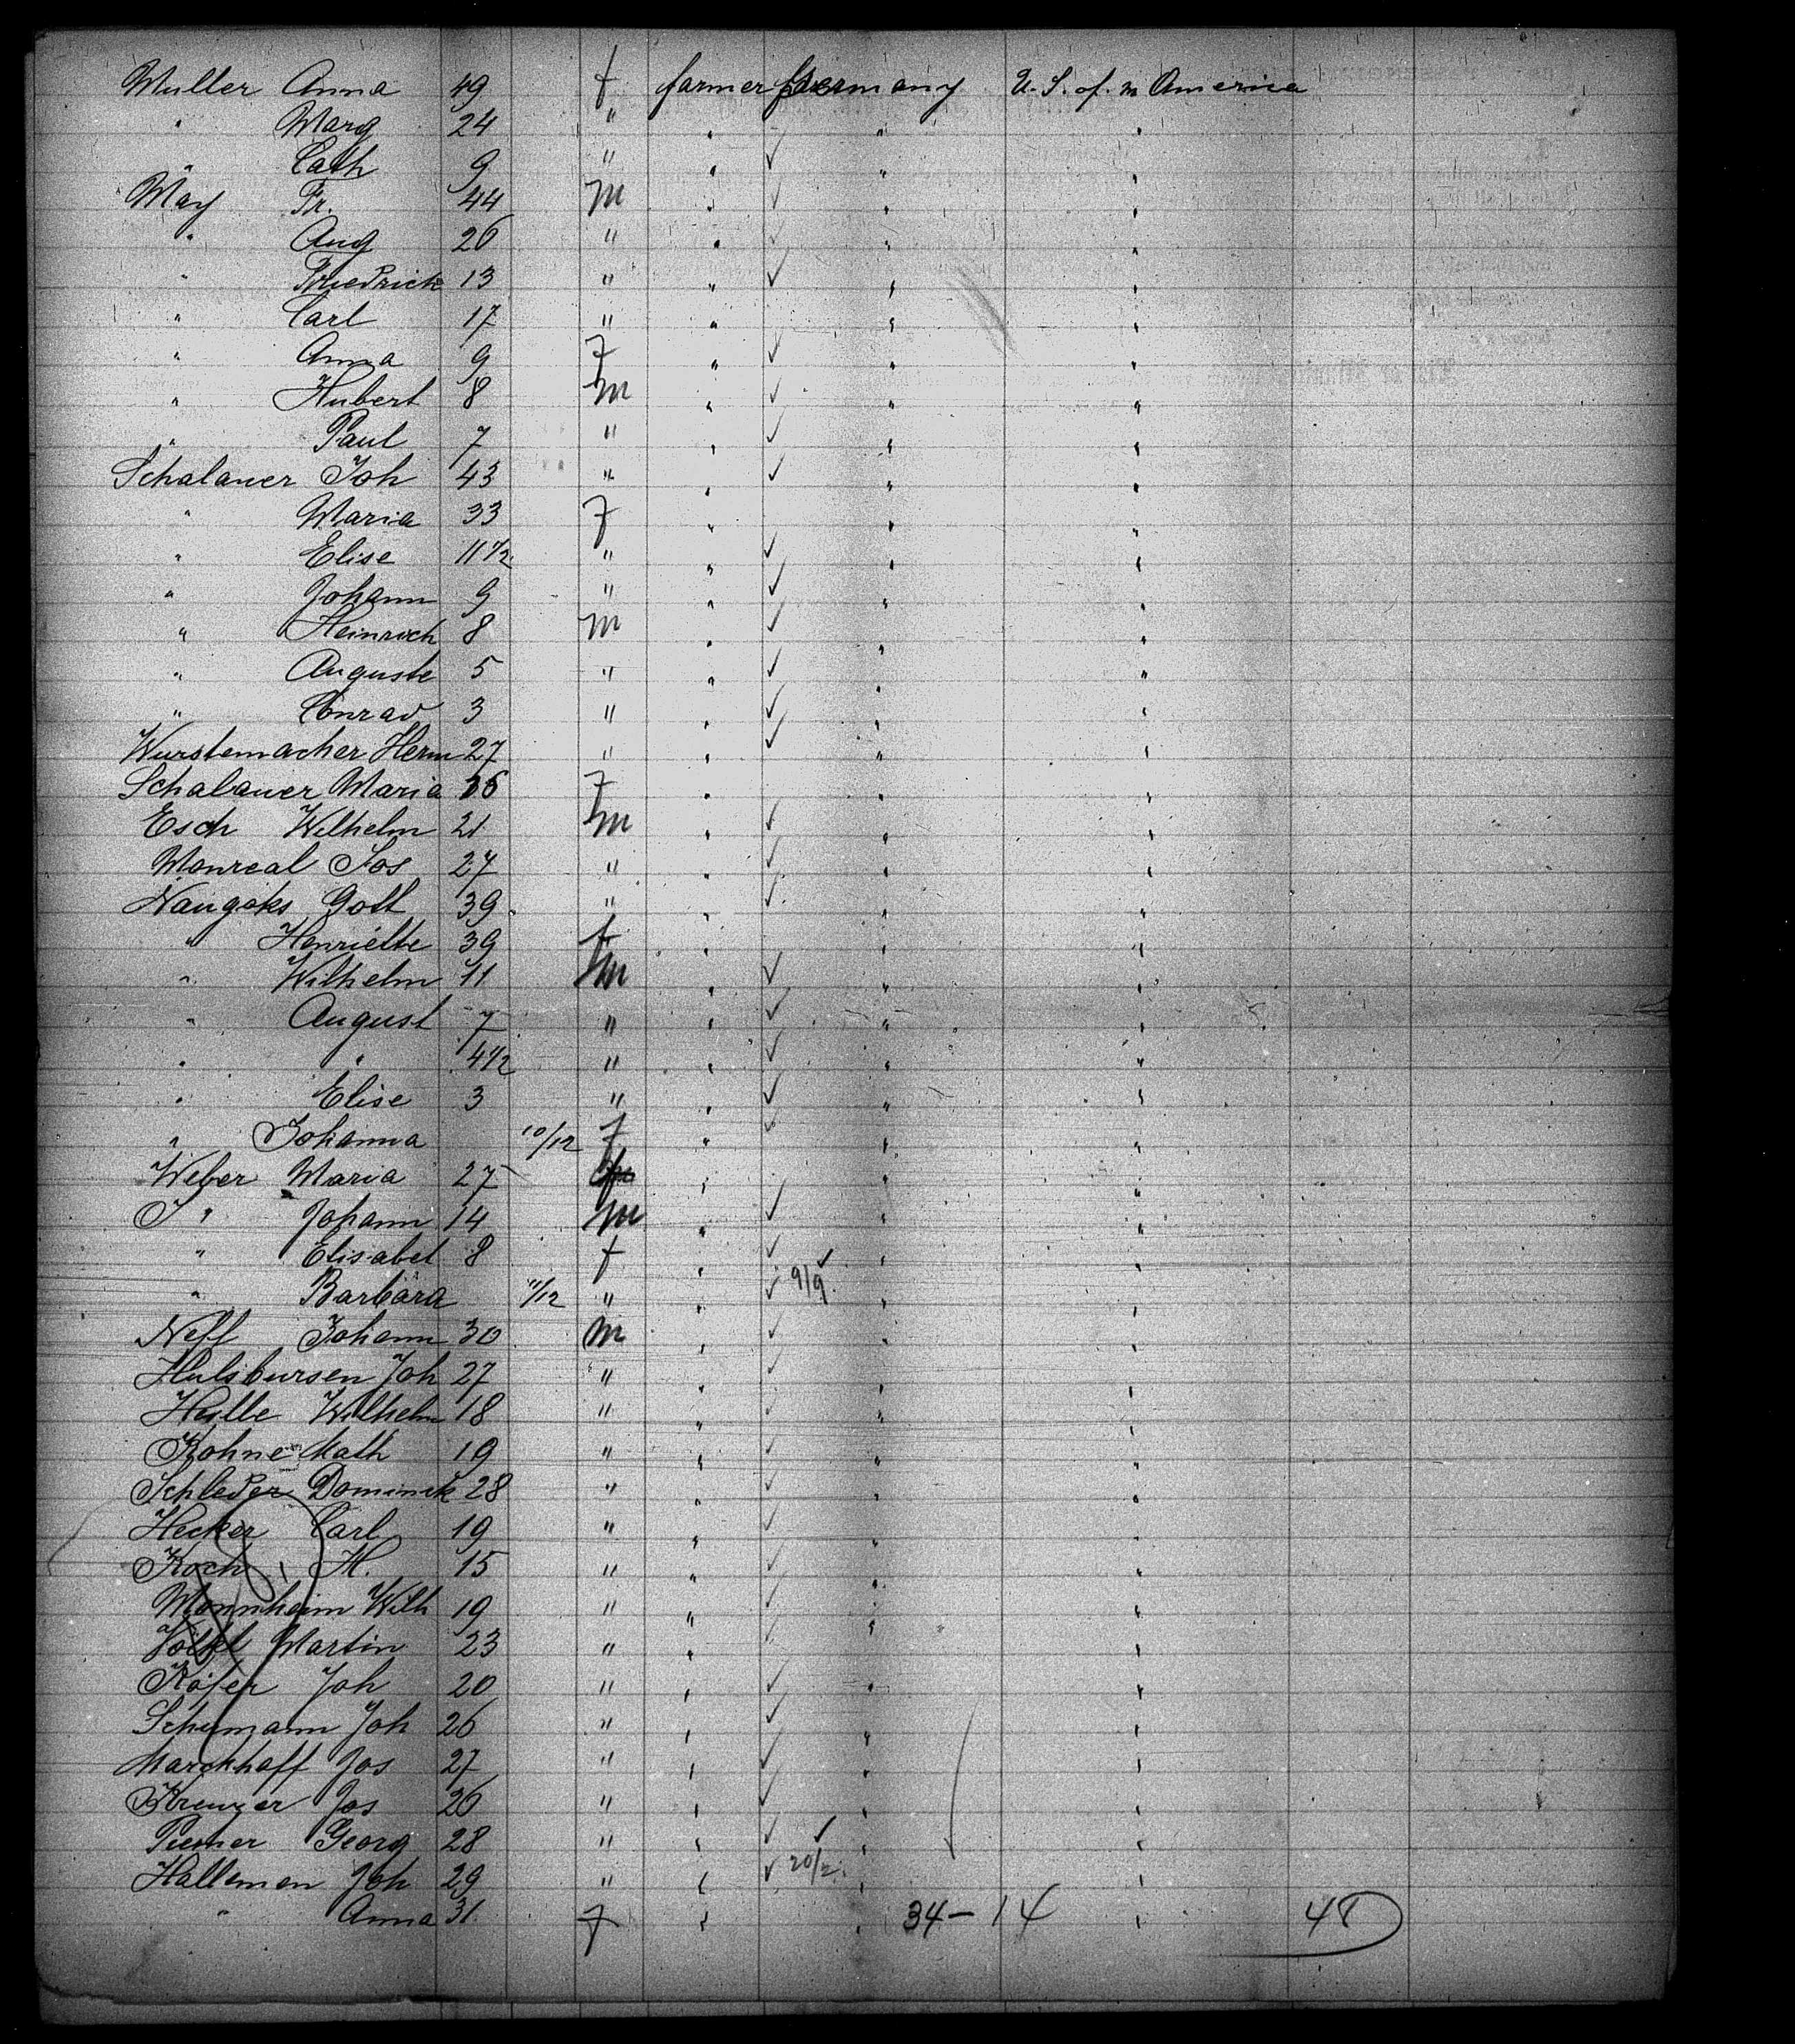 Muller Anna 49 f farmer Germany U. S. of. n America
" Marg 24 " " " "
" Cath 9 " " ✓ " "
May Fr. 44 m " ✓ " "
" Aug 26 " " ✓ " "
" Friedrich 13 " " ✓ " "
" Carl 17 " " " "
" Anna 9 f " ✓ " "
" Hubert 8 m " ✓ " "
" Paul 7 " " ✓ " "
Schalauer Joh 43 " " ✓ " "
" Maria 33 f " " "
" Elise 11 1/2 " " ✓ " "
" Johann 9 " " ✓ " "
" Heinrich 8 m " ✓ " "
" Auguste 5 " " ✓ " "
" Conrad 3 " " ✓ " "
Wurstemacher Herm 27 " " ✓ " "
Schalauer Maria f " " "
Esch Wilhelm 21 m " ✓ " "
Monreal Jos 27 " " ✓ " "
Naugoks Gott 39 " " ✓ " "
" Henriette 39 f " " "
" Wilhelm 11 m " ✓ " "
" August 7 " " ✓ " "
" " 4 1/2 " " ✓ " "
" Elise 3 " " ✓ " "
" Johanna 10/12 f " ✓ " "
Weber Maria 27 " " "
" Johann 14 m " ✓ " "
" Elisabet 8 f " ✓ ✓ " "
" Barbara 11/12 " " ✓ 9/9 " "
Neff Johann 30 m " ✓ " "
Hulsbursen Joh 27 " " ✓ " "
Heille Wilhelm 18 " " ✓ " "
Kohne Math 19 " " ✓ " "
Schleder Dominik 28 " " ✓ " "
Hecker Carl 19 " " ✓ " "
Koch H. 15 " " ✓ " "
Monnheim Wilh 19 " " ✓ " "
Martin 23 " " ✓ "
Kofer Joh 20 " " ✓ " "
Schumann Joh 26 " " ✓ " "
Marckhoff Jos 27 " " ✓ " "
Kreuzer Jos 26 " " ✓ " "
Georg 28 " " ✓ ✓ " "
Hallemen Joh 29 " " ✓ 20/2. " "
" Anna 31 f " " 34 – 14 " 48